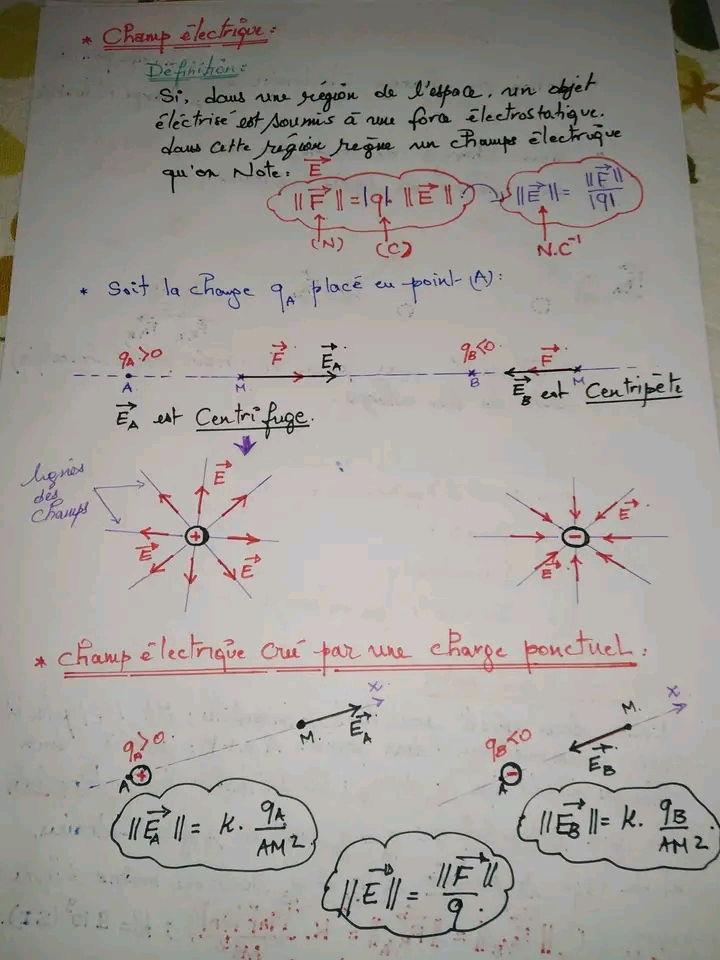 * Champ électrique :
Définition :
Si, dans une région de l'espace, un objet
éléctrisé est soumis à une force électrostatique.
dans cette région règne un champs électrique
qu'on Note : E⃗
||F⃗|| = |q| ||E⃗|| → ||E⃗|| = ||F⃗|| / |q|
(N) (C) N.C⁻¹
* Soit la charge qA placé en point (A) :
qA>0 F⃗ E⃗A qB<0 F⃗
A M B E⃗B M
E⃗A est Centrifuge. E⃗B est Centripète
lignes
des
champs
E⃗ E⃗ E⃗ +
E⃗ E⃗ -
* Champ électrique crée par une charge ponctuel :
qA>0 A + M E⃗A x
qB<0 A - M E⃗B x
||E⃗A|| = K. qA / AM²
||E⃗B|| = K. qB / AM²
||E⃗|| = ||F⃗|| / q.